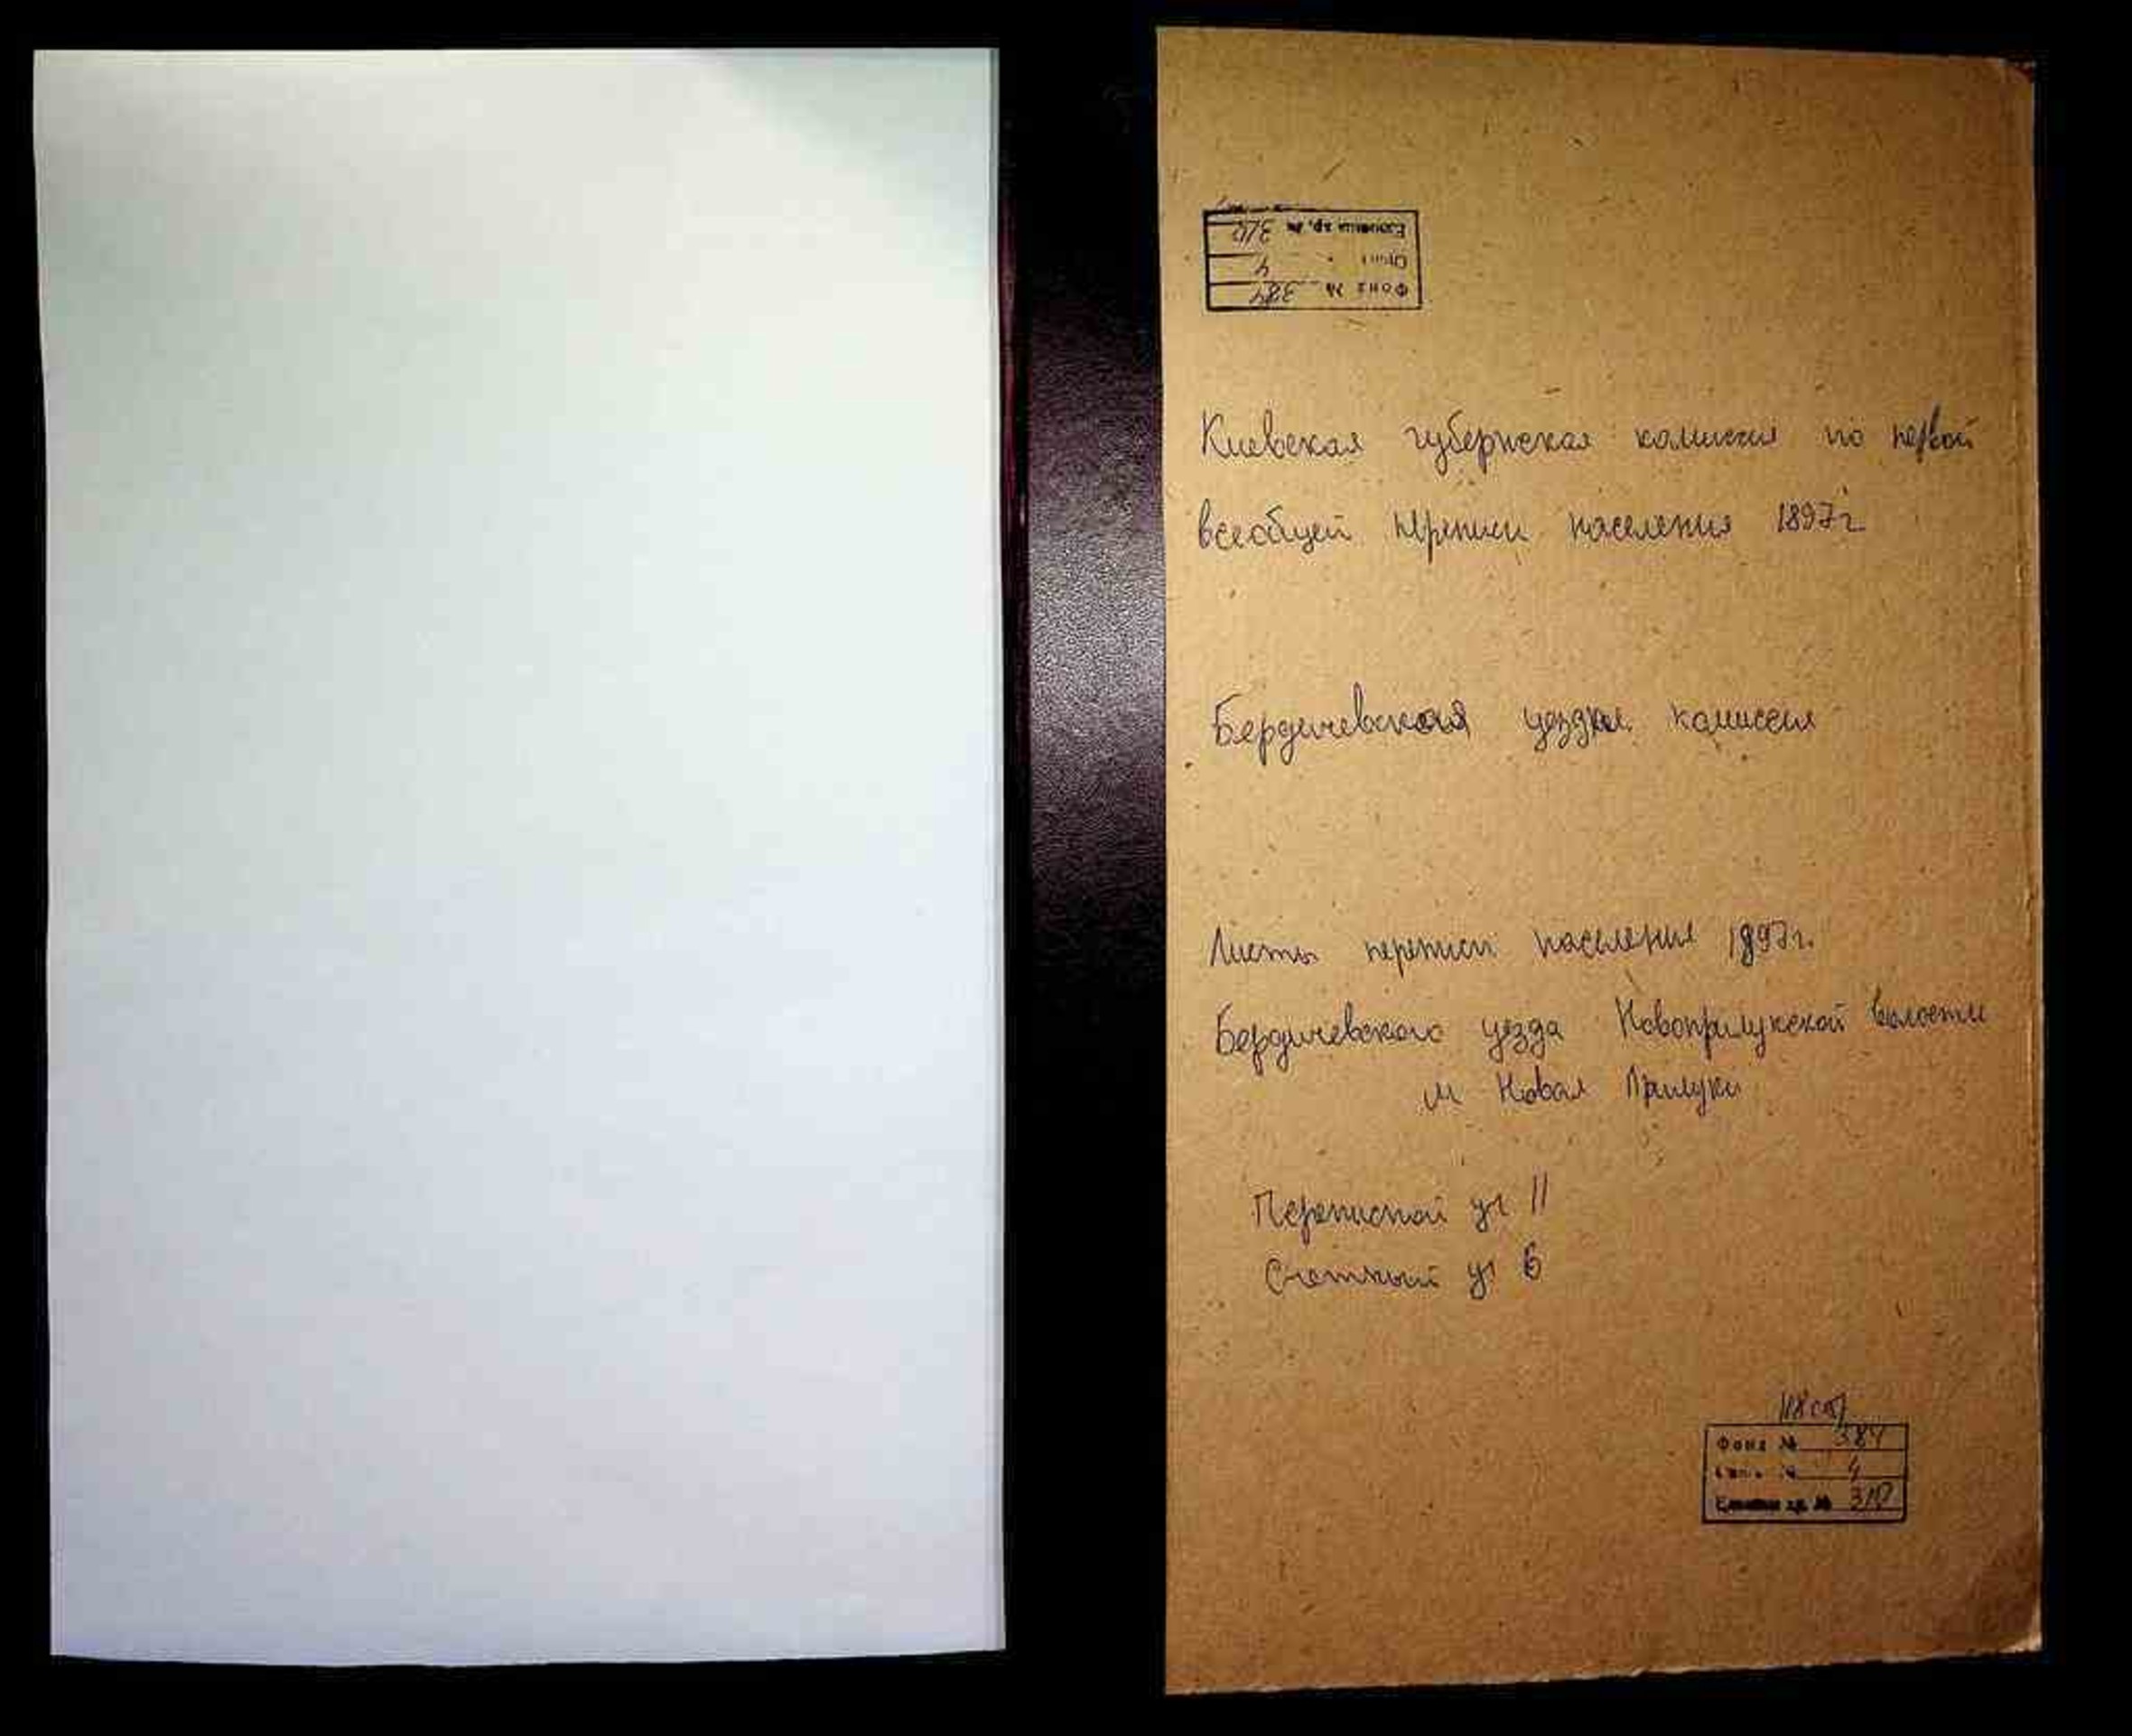 Единица хр. № 310
Опись „ 4
Фонд № 384
Киевская губернская комиссия по первой
всеобщей переписи населения 1897г.
Бердичевская уездная комиссия
Листы переписи населения 1897г.
Бердичевского уезда Новоприлукской волости
м Новая Прилуки
Переписной уч 11
Счетный уч 6
Фонд № 384
Опись № 4
Единица хр. № 310